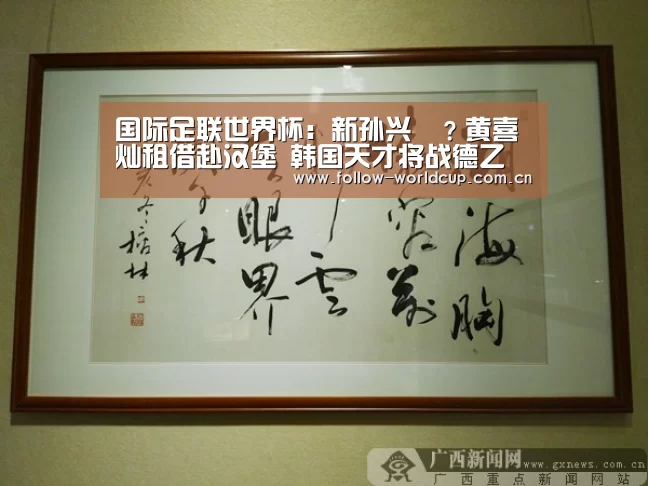 国际足联世界杯：新孙兴 ？黄喜
灿租借赴汉堡 韩国天才将战德乙
www.follow-worldcup.com.cn
海胸
萬
雲
眼界
秋
冬林
广西新闻网
www.gxnews.com.cn
广西重点新闻网站